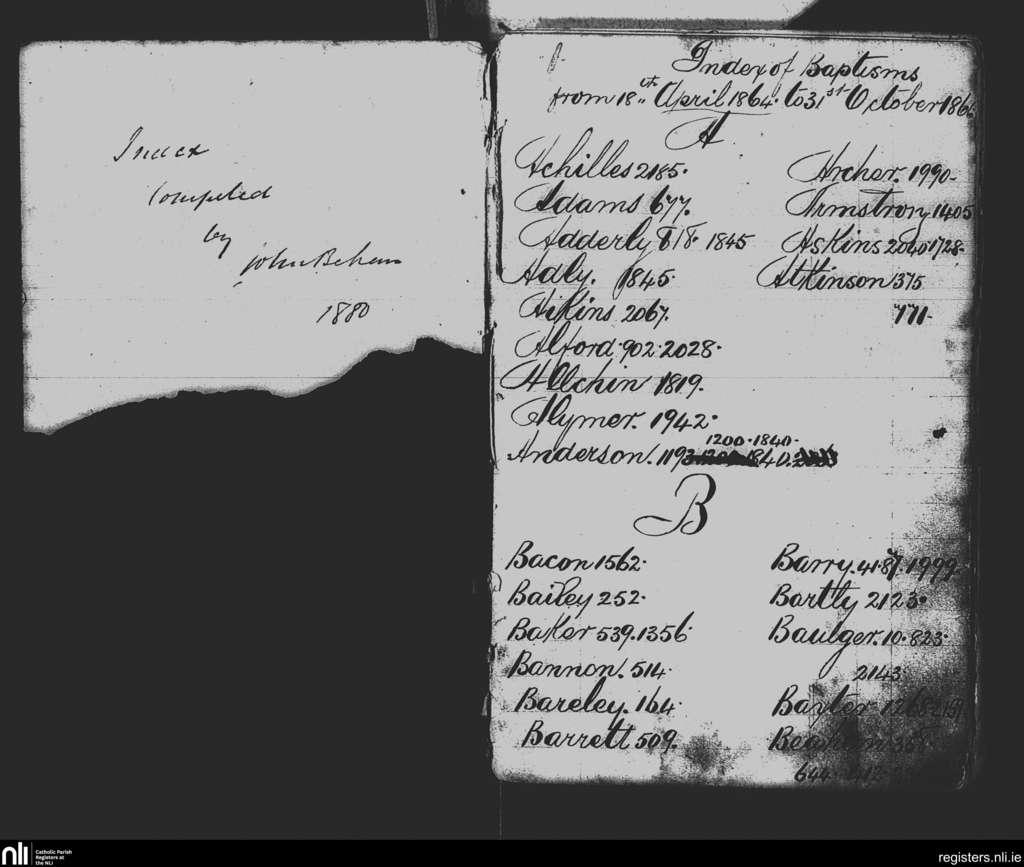 Index
Compiled
by
John Behan
1880
Index of Baptisms
from 18th April 1864 to 31st October 186
A
Achilles 2185.
Adams 677.
Adderly 818. 1845
Adly. 1845
Aikins 2067.
Alford. 902. 2028.
Allchin 1819.
Alymer. 1942.
1200. 1840.
Anderson. 1193
Archer. 1990.
Armstrong 1405
Askins 2040 1728.
Attkinson 375
771.
B
Bacon 1562.
Bailey 252.
Baker 539. 1356.
Bannon. 514.
Bareley. 164.
Barrett 509.
Barry. 41. 87. 1999.
Bartly 2123.
Baulger. 10. 823.
2143
Baxter 1268
644
nli Catholic Parish
Registers at
the NLI
registers.nli.ie